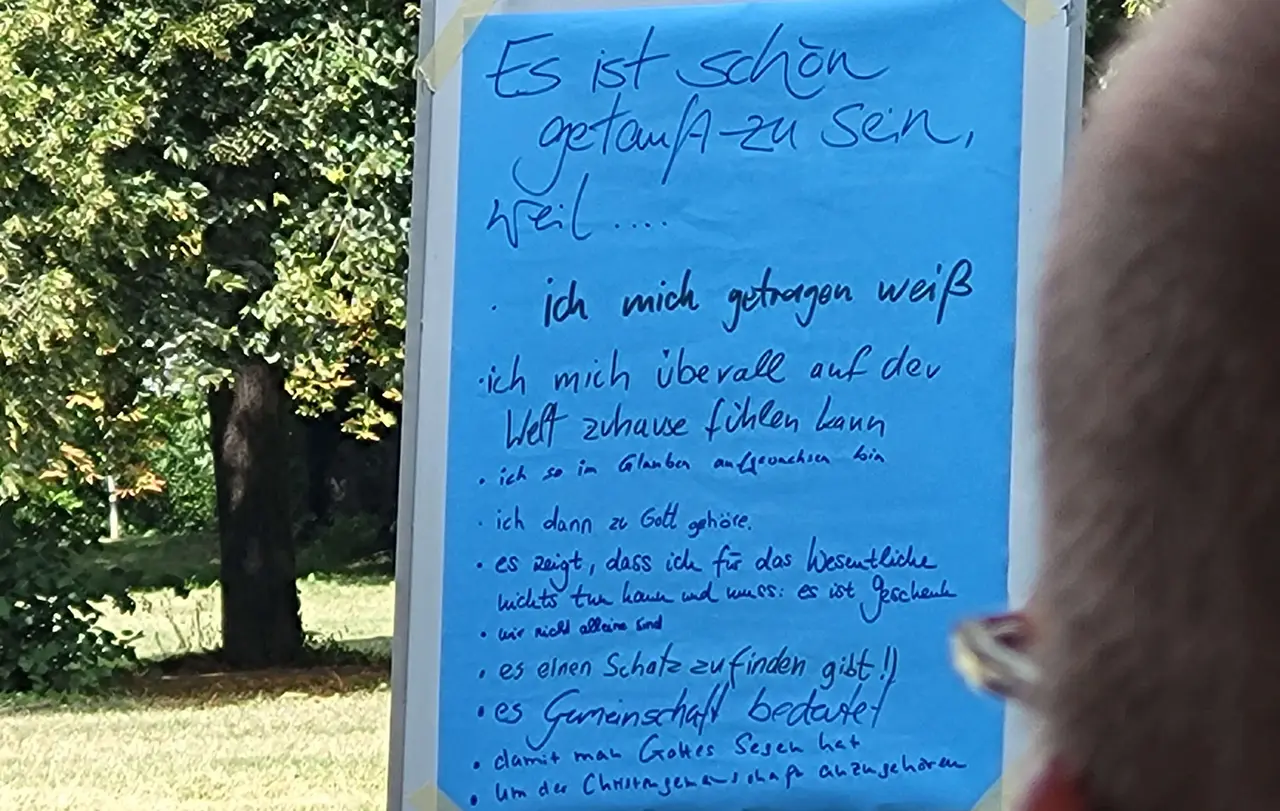 Es ist schön
getauft zu sein,
weil....
· ich mich getragen weiß
· ich mich überall auf der
Welt zuhause fühlen kann
· ich so im Glauben aufgewachsen bin
· ich dann zu Gott gehöre.
· es zeigt, dass ich für das Wesentliche
nichts tun kann und muss: es ist Geschenk
· wir nicht alleine sind
· es einen Schatz zu finden gibt!!
· es Gemeinschaft bedeutet
· damit man Gottes Segen hat
· um der Christengemeinschaft anzugehören